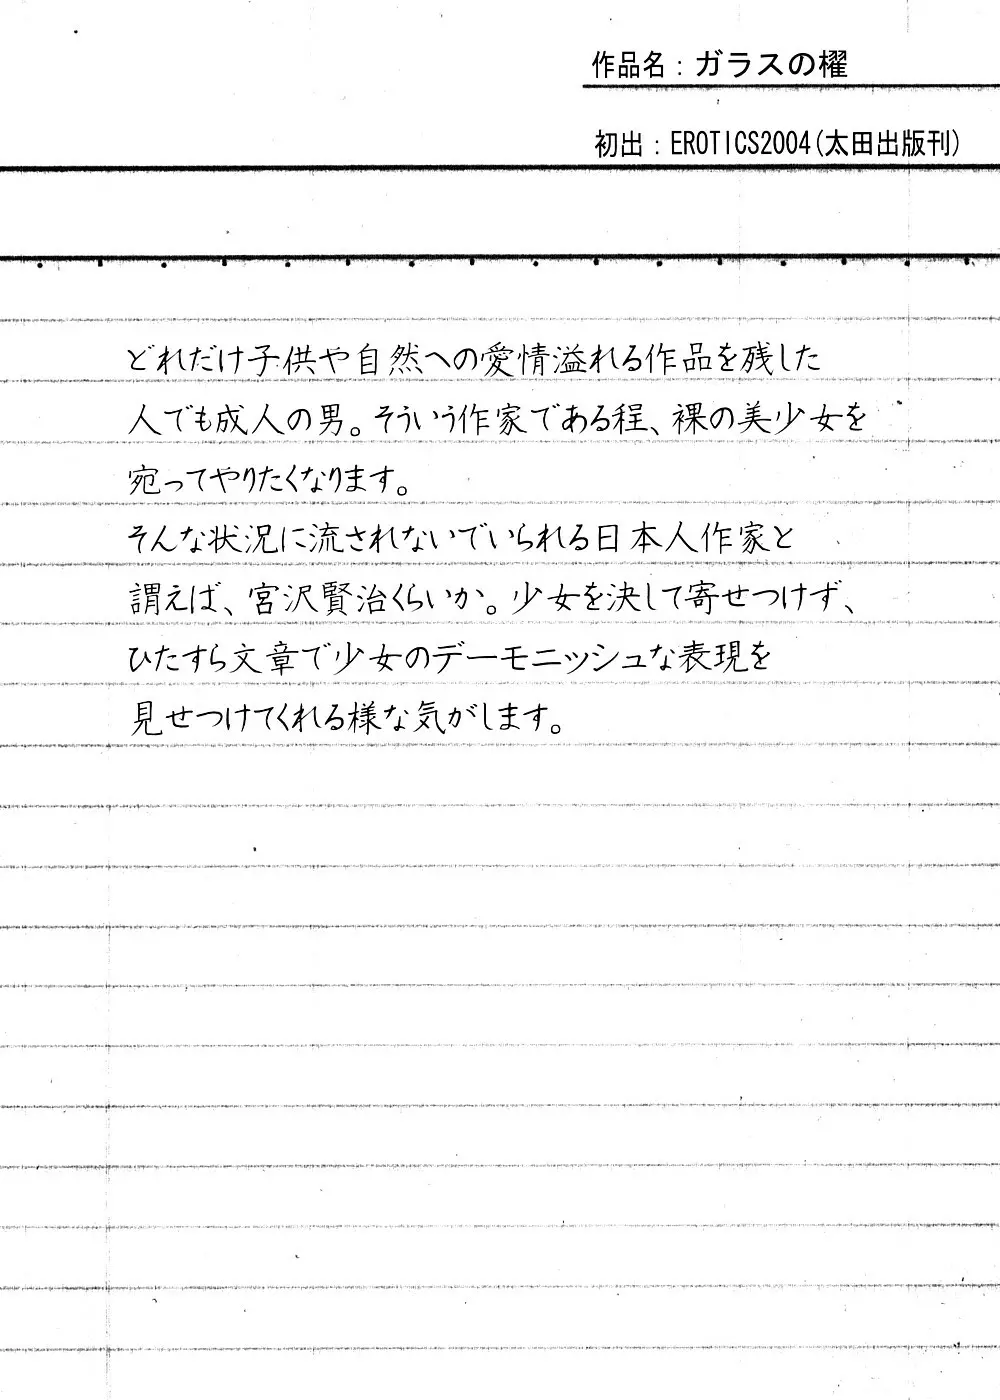 作品名：ガラスの櫂
初出：EROTICS2004(太田出版刊)
どれだけ子供や自然への愛情溢れる作品を残した
人でも成人の男。そういう作家である程、裸の美少女を
宛ってやりたくなります。
そんな状況に流されないでいられる日本人作家と
謂えば、宮沢賢治くらいか。少女を決して寄せつけず、
ひたすら文章で少女のデーモニッシュな表現を
見せつけてくれる様な気がします。